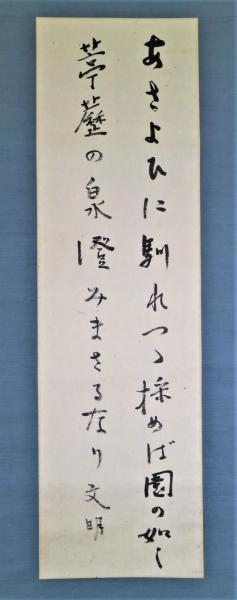 あさよひに馴れつゝ採めば園の如し
葶藶の泉澄みまさるなり 文明